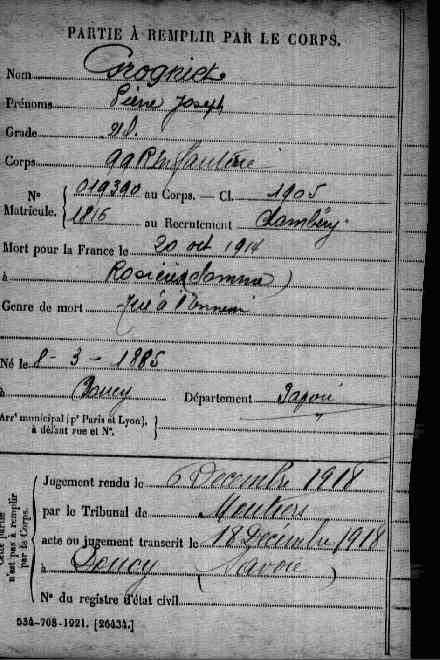 PARTIE À REMPLIR PAR LE CORPS.
Nom Grogniet
Prénoms Pierre Joseph
Grade 2 S.
Corps 99 R. Infanterie
Nº 019390 au Corps. — Cl. 1905
Matricule. 1816 au Recrutement Chambéry
Mort pour la France le 20 oct 1914
à Rosières (Somme)
Genre de mort Tué à l'ennemi
Né le 8 - 3 - 1885
à Doucy Département Savoie
Arrt municipal (pr Paris et Lyon),
à défaut rue et Nº.
Cette partie
n'est pas à remplir
par le Corps.
Jugement rendu le 6 Décembre 1918
par le Tribunal de Moutiers
acte ou jugement transcrit le 18 Décembre 1918
à Doucy (Savoie)
Nº du registre d'état civil
534-708-1921. [26434.]